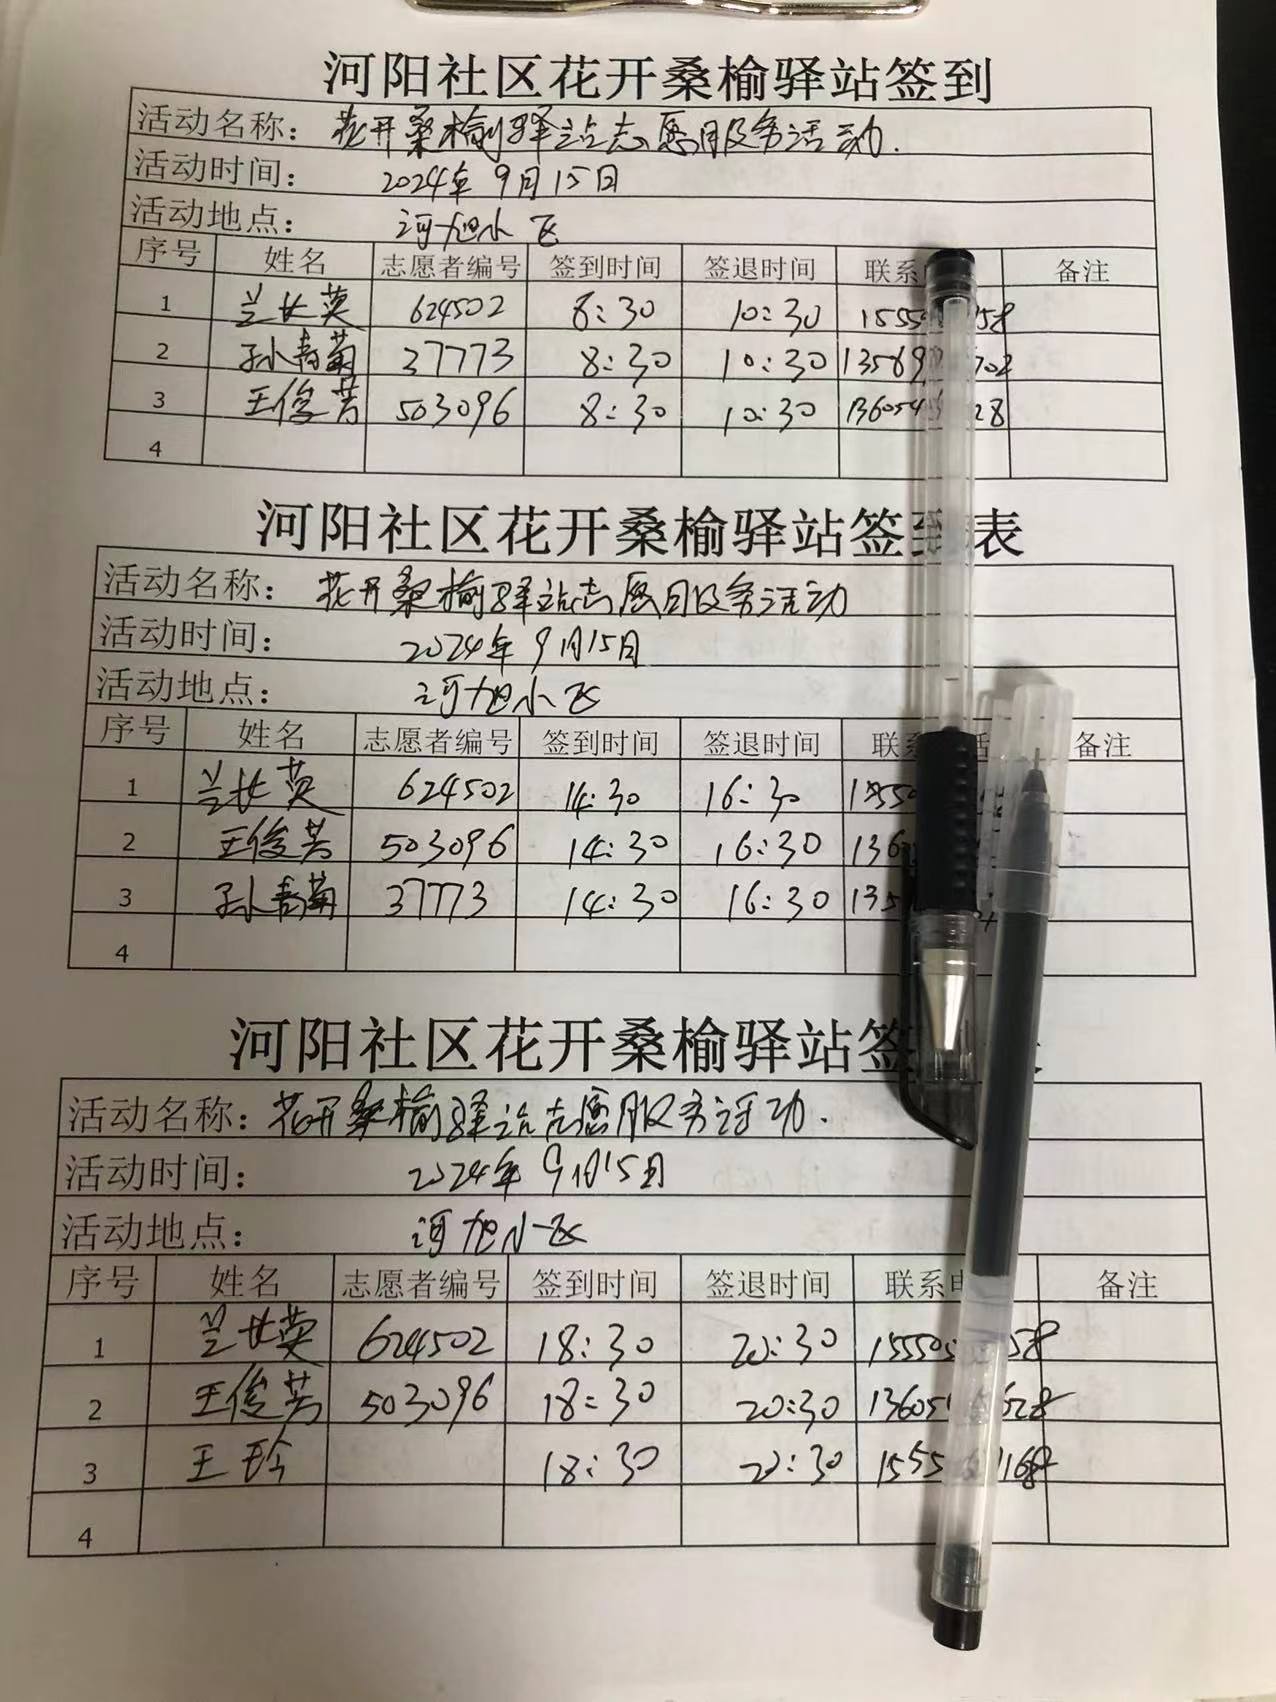 河阳社区花开桑榆驿站签到
活动名称： 花开桑榆驿站志愿服务活动.
活动时间： 2024年9月15日
活动地点： 河旭小飞
序号 姓名 志愿者编号 签到时间 签退时间 联系 备注
1 兰长英 624502 8:30 10:30
2 孙青菊 37773 8:30 10:30
3 王俊芳 503096 8:30 10:30
4
河阳社区花开桑榆驿站签到表
活动名称： 花开桑榆驿站志愿服务活动
活动时间： 2024年9月15日
活动地点： 河旭小飞
序号 姓名 志愿者编号 签到时间 签退时间 联系 话 备注
1 兰长英 624502 14:30 16:30
2 王俊芳 503096 14:30 16:30
3 孙青菊 37773 14:30 16:30
4
河阳社区花开桑榆驿站签
活动名称：花开桑榆驿站志愿服务活动.
活动时间： 2024年9月15日
活动地点： 河旭小飞
序号 姓名 志愿者编号 签到时间 签退时间 联系电 备注
1 兰长英 624502 18:30 20:30
2 王俊芳 503096 18:30 20:30
3 王玲 18:30 20:30
4